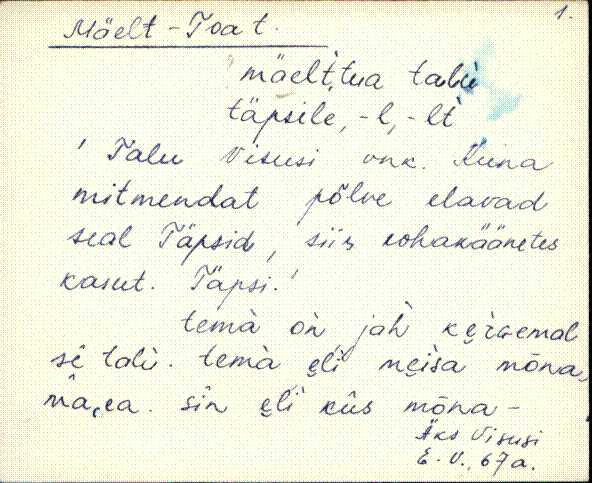 1.
Mäelt-Toa t.
mäel̀t̀,tua talù
täpsile, -l, -lt̀
' Talu Visusi vnk. Kuna
mitmendat põlve elavad
seal Täpsid, siis kohakäänetes
kasut. Täpsi.'
temà òǹ jah̀ kẹrgemal
talù. temà ẹlì mẹìsa mõna,
sîn ẹlì kûs mõna-
Äks Visusi
E. V., 67 a.